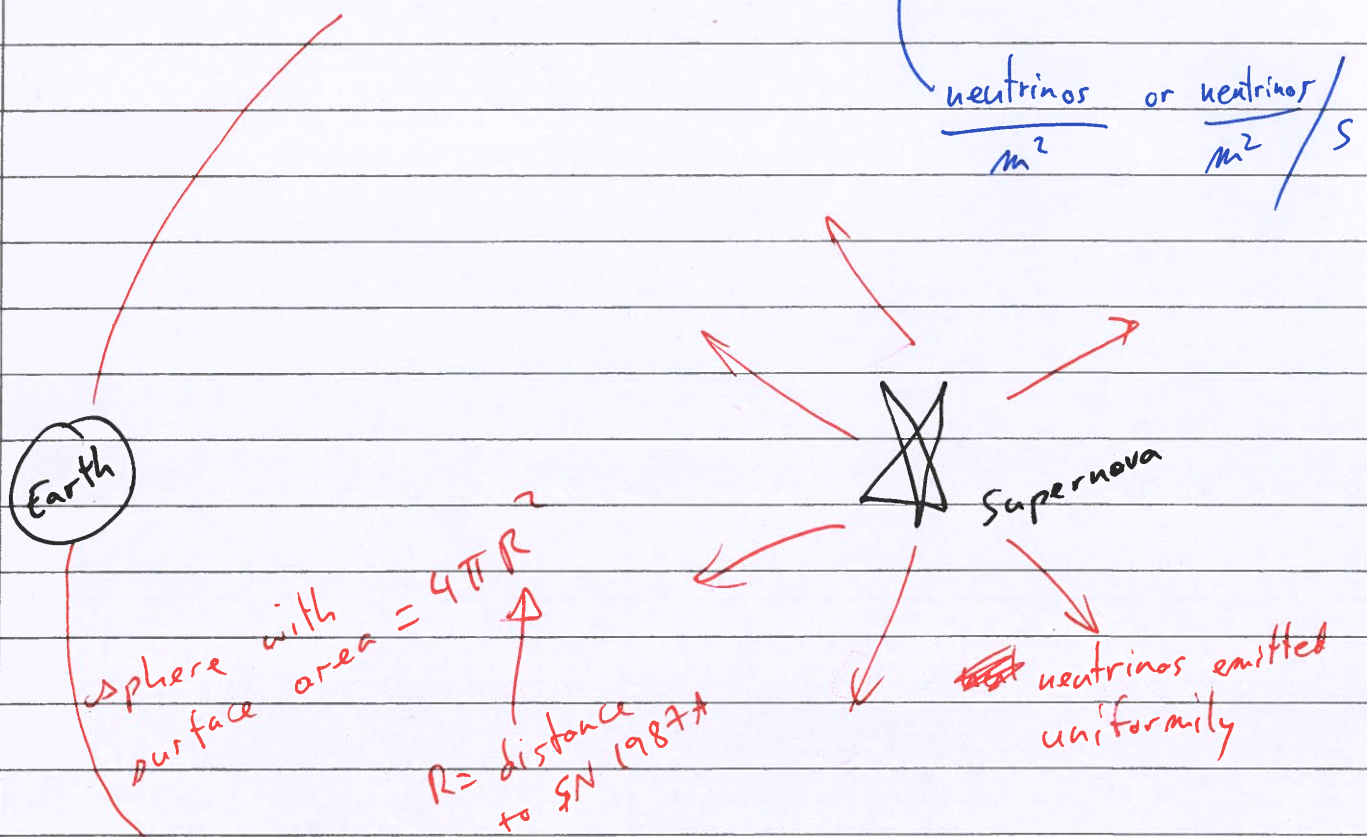 neutrinos or neutrinos /
m² m² s
Earth
Supernova
sphere with
surface area = 4πR²
R = distance
to SN 1987A
neutrinos emitted
uniformily